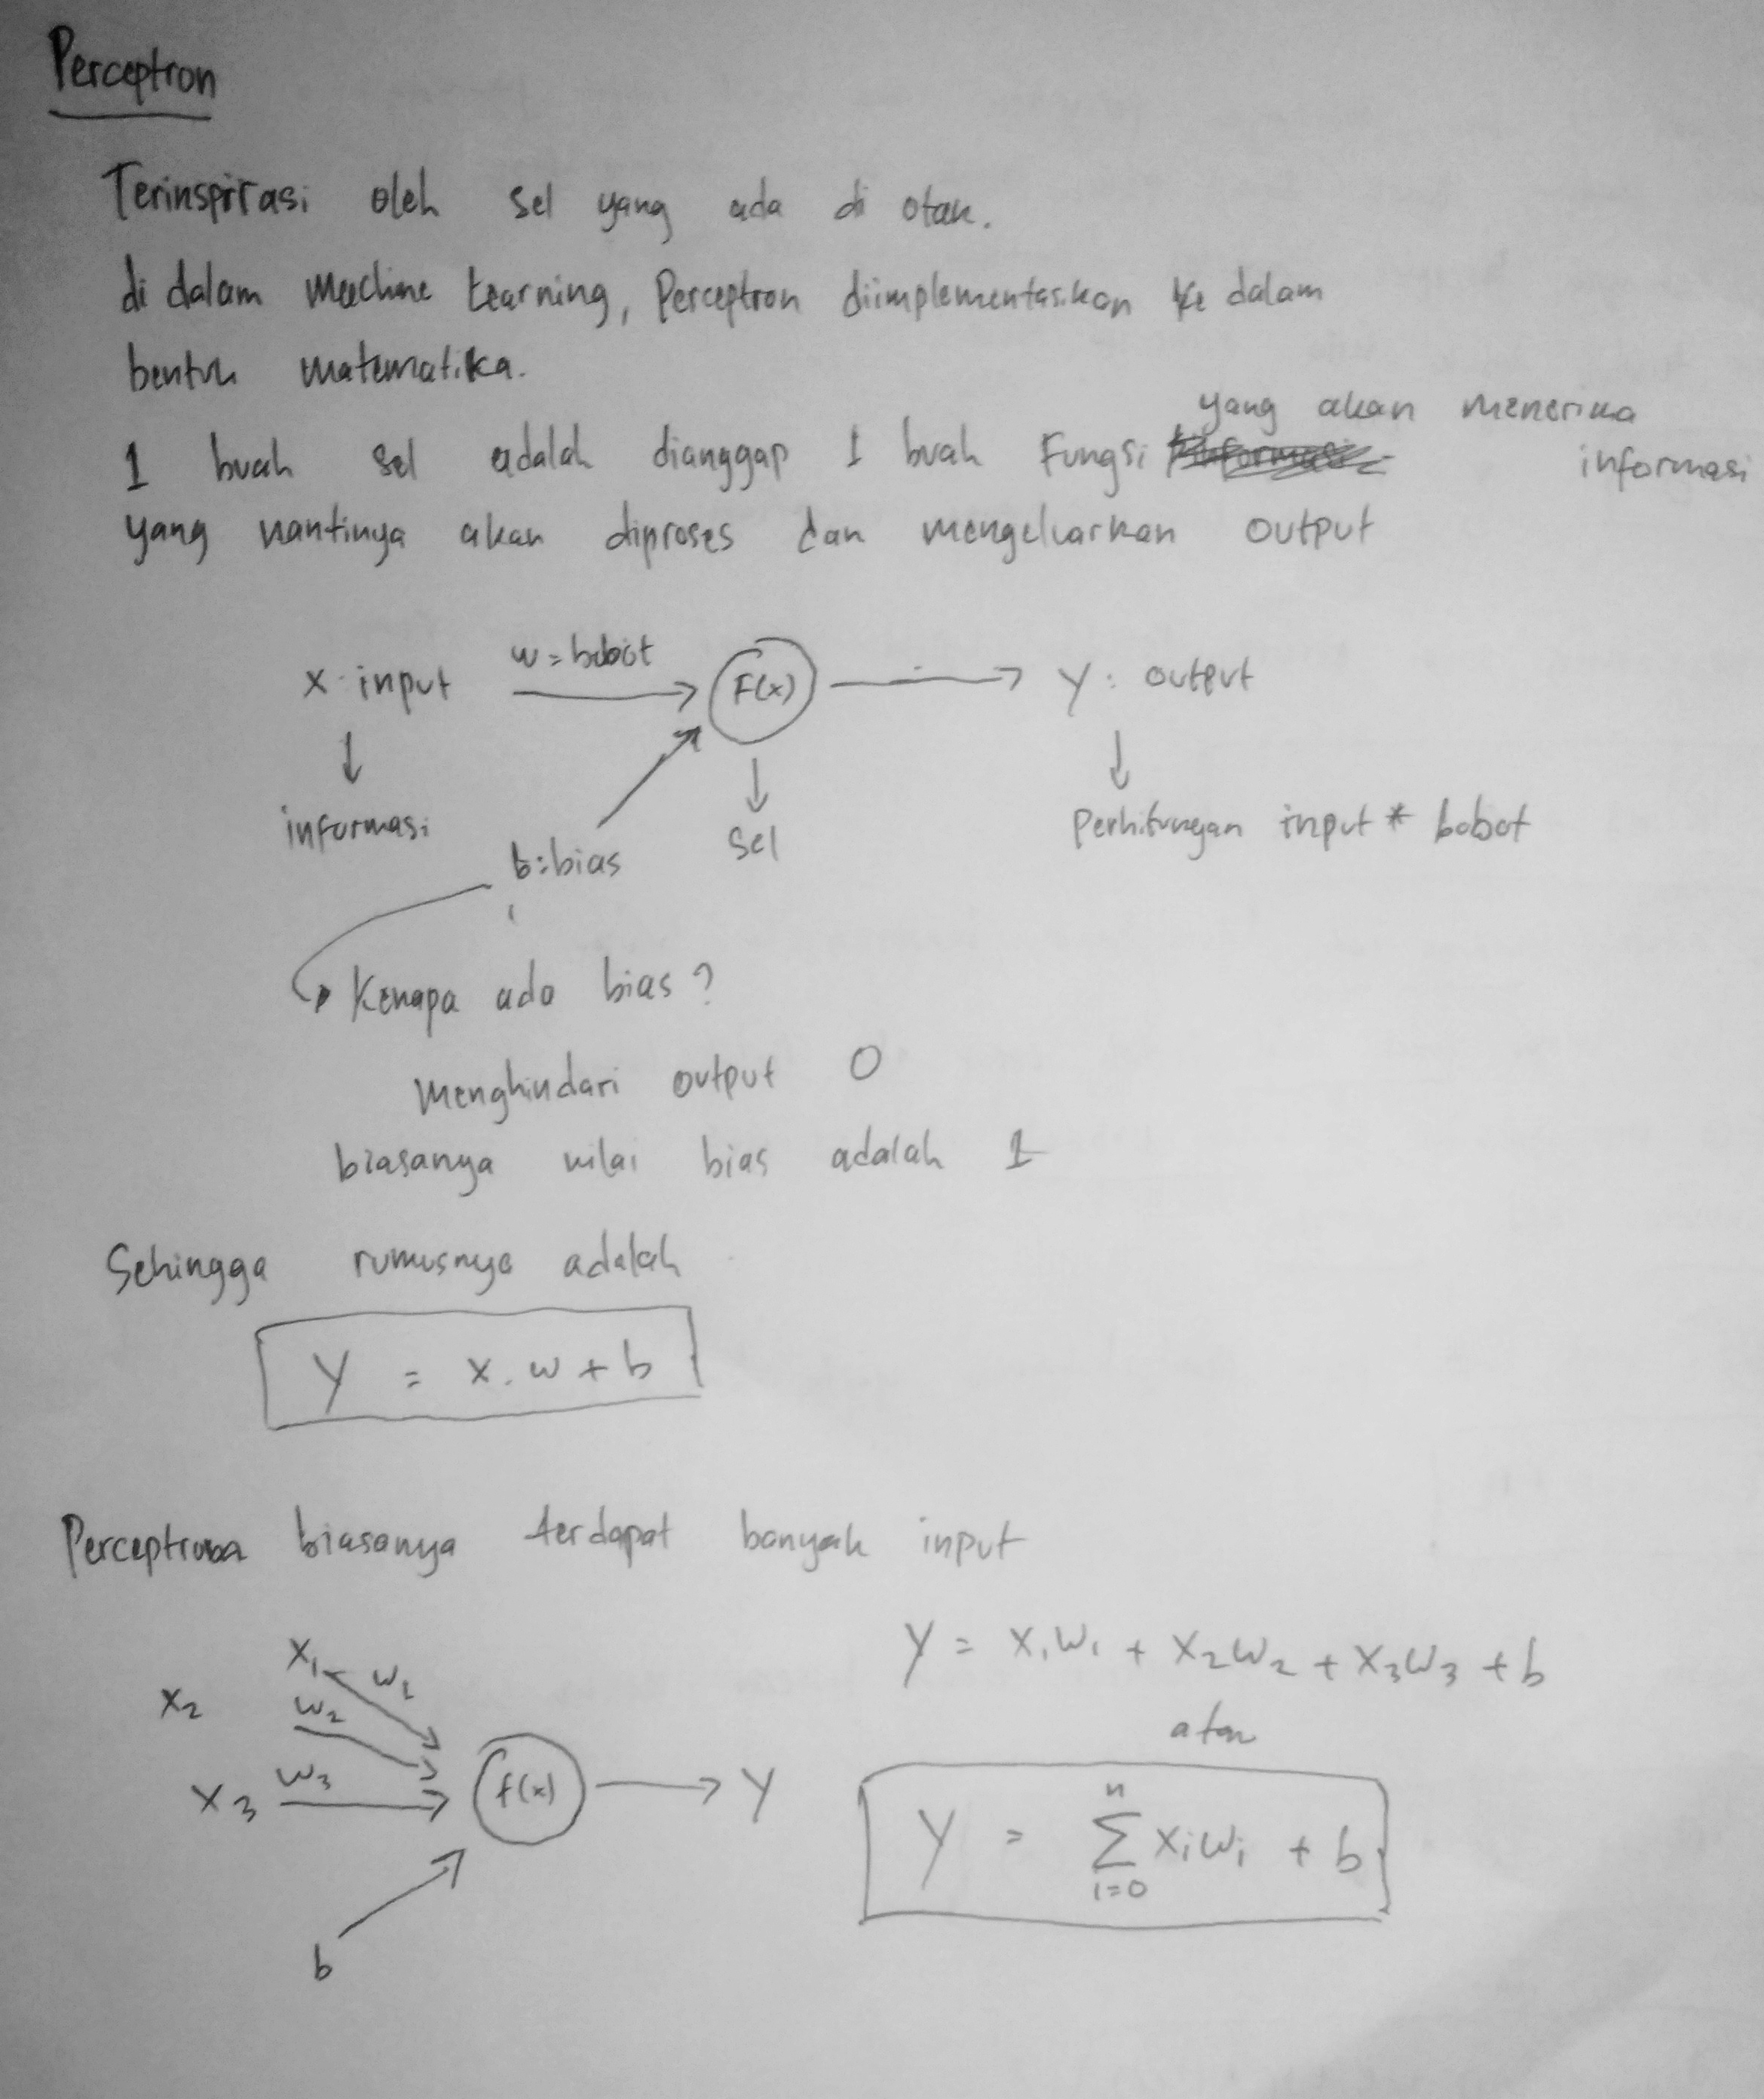 Perceptron
Terinspirasi oleh sel yang ada di otak.
di dalam Machine Learning, Perceptron diimplementasikan ke dalam
bentuk matematika.
yang akan menerima
1 buah sel adalah dianggap 1 buah Fungsi informasi
yang nantinya akan diproses dan mengeluarkan output
w = bobot
x: input F(x) y: output
informasi sel Perhitungan input * bobot
b: bias
Kenapa ada bias?
Menghindari output 0
biasanya nilai bias adalah 1
Sehingga rumusnya adalah
Y = x . w + b
biasanya terdapat banyak input
x₁ w₁ Y = x₁w₁ + x₂w₂ + x₃w₃ + b
x₂ w₂ atau
x₃ w₃ f(x) Y
Y = n Σ i=0 xᵢwᵢ + b
b